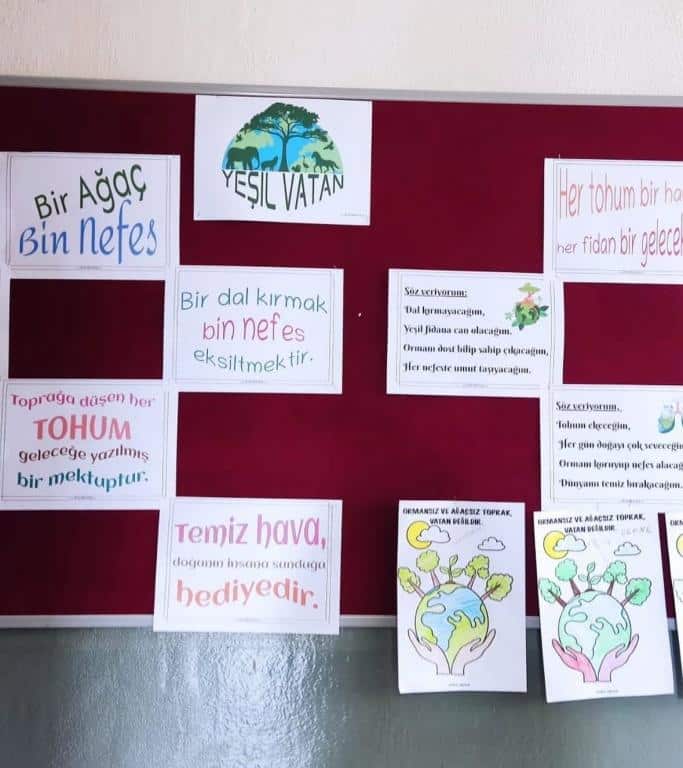 YEŞİL VATAN
Bir Ağaç
Bin Nefes
Her tohum bir
her fidan bir
Bir dal kırmak
bin nefes
eksiltmektir.
Söz veriyorum:
Dal kırmayacağım,
Yeşil fidana can olacağım.
Ormanı dost bilip sahip çıkacağım,
Her nefeste umut taşıyacağım.
Toprağa düşen her
TOHUM
geleceğe yazılmış
bir mektuptur.
Söz veriyorum,
Tohum ekeceğim,
Her gün doğayı çok seveceğim
Ormanı koruyup nefes
Dünyamı temiz bırakacağım.
Temiz hava,
doğanın insana sunduğu
hediyedir.
ORMANSIZ VE AĞAÇSIZ TOPRAK,
VATAN DEĞİLDİR.
ORMANSIZ VE AĞAÇSIZ TOPRAK,
VATAN DEĞİLDİR.